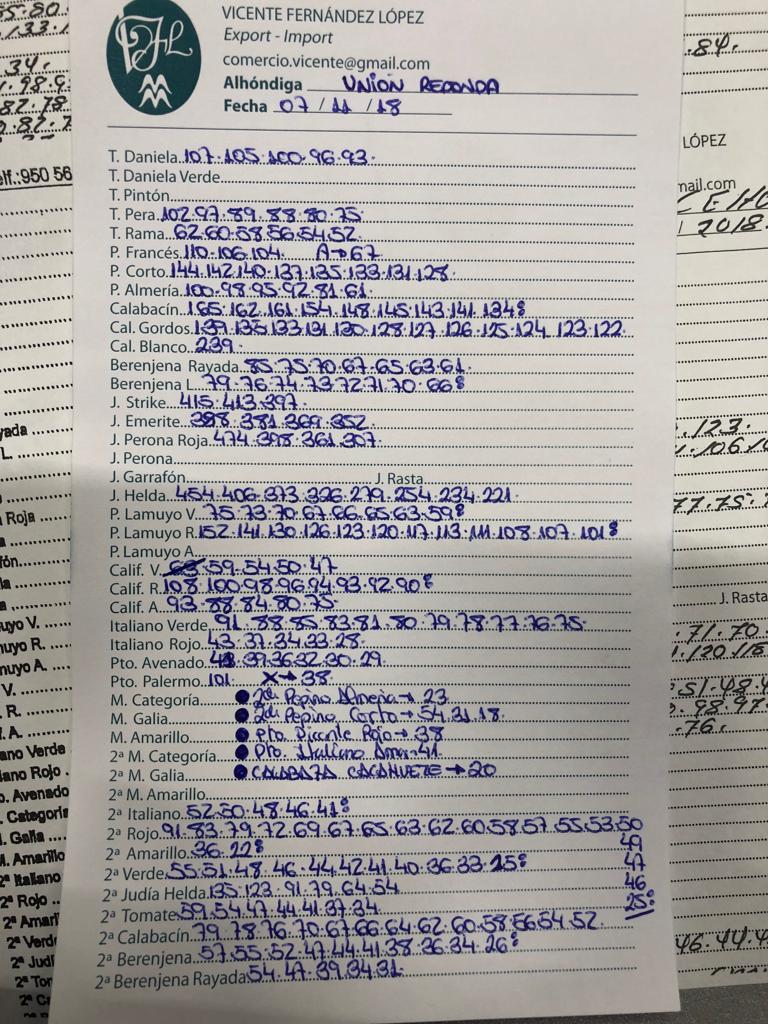 VICENTE FERNÁNDEZ LÓPEZ
Export - Import
comercio.vicente@gmail.com
Alhóndiga UNION REDONDA
Fecha 07 / 11 / 18
T. Daniela 107.105.100.96.93.
T. Daniela Verde
T. Pintón
T. Pera 102.97.89.88.80.75
T. Rama 62.60.58.56.54.52
P. Francés 110.106.104. A→67
P. Corto 144.142.140.137.135.133.131.128
P. Almería 100.98.95.92.81.61
Calabacín 165.162.161.154.148.145.143.141.134
Cal. Gordos 139.135.133.131.130.128.127.126.125.124.123.122
Cal. Blanco 239
Berenjena Rayada 85.75.70.67.65.63.61
Berenjena L. 79.76.74.73.72.71.70.66
J. Strike 415.413.397
J. Emerite 398.381.369.352
J. Perona Roja 474.398.361.307
J. Perona
J. Garrafón J. Rasta
J. Helda 454.406.373.326.279.254.234.221
P. Lamuyo V. 75.73.70.67.66.65.63.59
P. Lamuyo R. 152.141.130.126.123.120.117.113.111.108.107.101
P. Lamuyo A
Calif. V. 59.54.50.47
Calif. R. 108.100.98.96.94.93.92.90
Calif. A. 93.88.84.80.75
Italiano Verde 91.88.85.83.81.80.79.78.77.76.75
Italiano Rojo 43.37.34.33.28
Pto. Avenado 39.36.32.30.29
Pto. Palermo 101 X→38
M. Categoría 2da Pepino Almeria→23
M. Galia 2da Pepino Corto→54.31.18
M. Amarillo Pto. Picante Rojo→38
2ª M. Categoría Pto. Italiano Ama→41
2ª M. Galia CALABAZA CACAHUETE→20
2ª M. Amarillo
2ª Italiano 52.50.48.46.41
2ª Rojo 91.83.79.72.69.67.65.63.62.60.58.57.55.53.50
49
2ª Amarillo 36.22
47
2ª Verde 55.51.48.46.44.42.41.40.36.33.25
46
2ª Judía Helda 135.123.91.79.64.54
25
2ª Tomate 59.54.47.44.41.37.34
2ª Calabacín 79.78.76.70.67.66.64.62.60.58.56.54.52
2ª Berenjena 57.55.52.47.44.41.38.36.34.26
2ª Berenjena Rayada 54.47.39.34.31